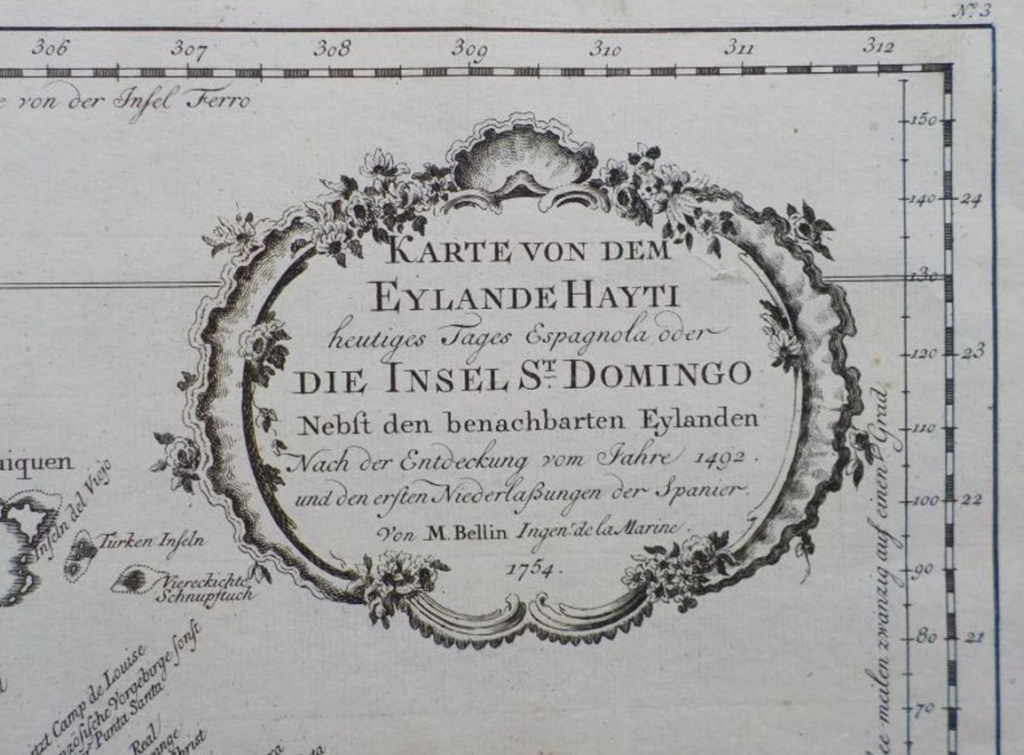 N.º 3
306 307 308 309 310 311 312
von der Insel Ferro
150
140 24
130
120 23
110
100 22
90
80 21
70
KARTE VON DEM
EYLANDE HAYTI
heutiges Tages Espagnola oder
DIE INSEL S.T DOMINGO
Nebſt den benachbarten Eylanden
Nach der Entdeckung vom Jahre 1492.
und den erſten Niederlaßungen der Spanier.
Von M. Bellin Ingen.r de la Marine.
1754.
meilen zwanzig auf einen Grad
Inſeln del Viejo
Turken Inſeln
Viereckichte
Schnupftuch
Camp de Louise
Vorgebürge ſonſt
Punta Santa
Real